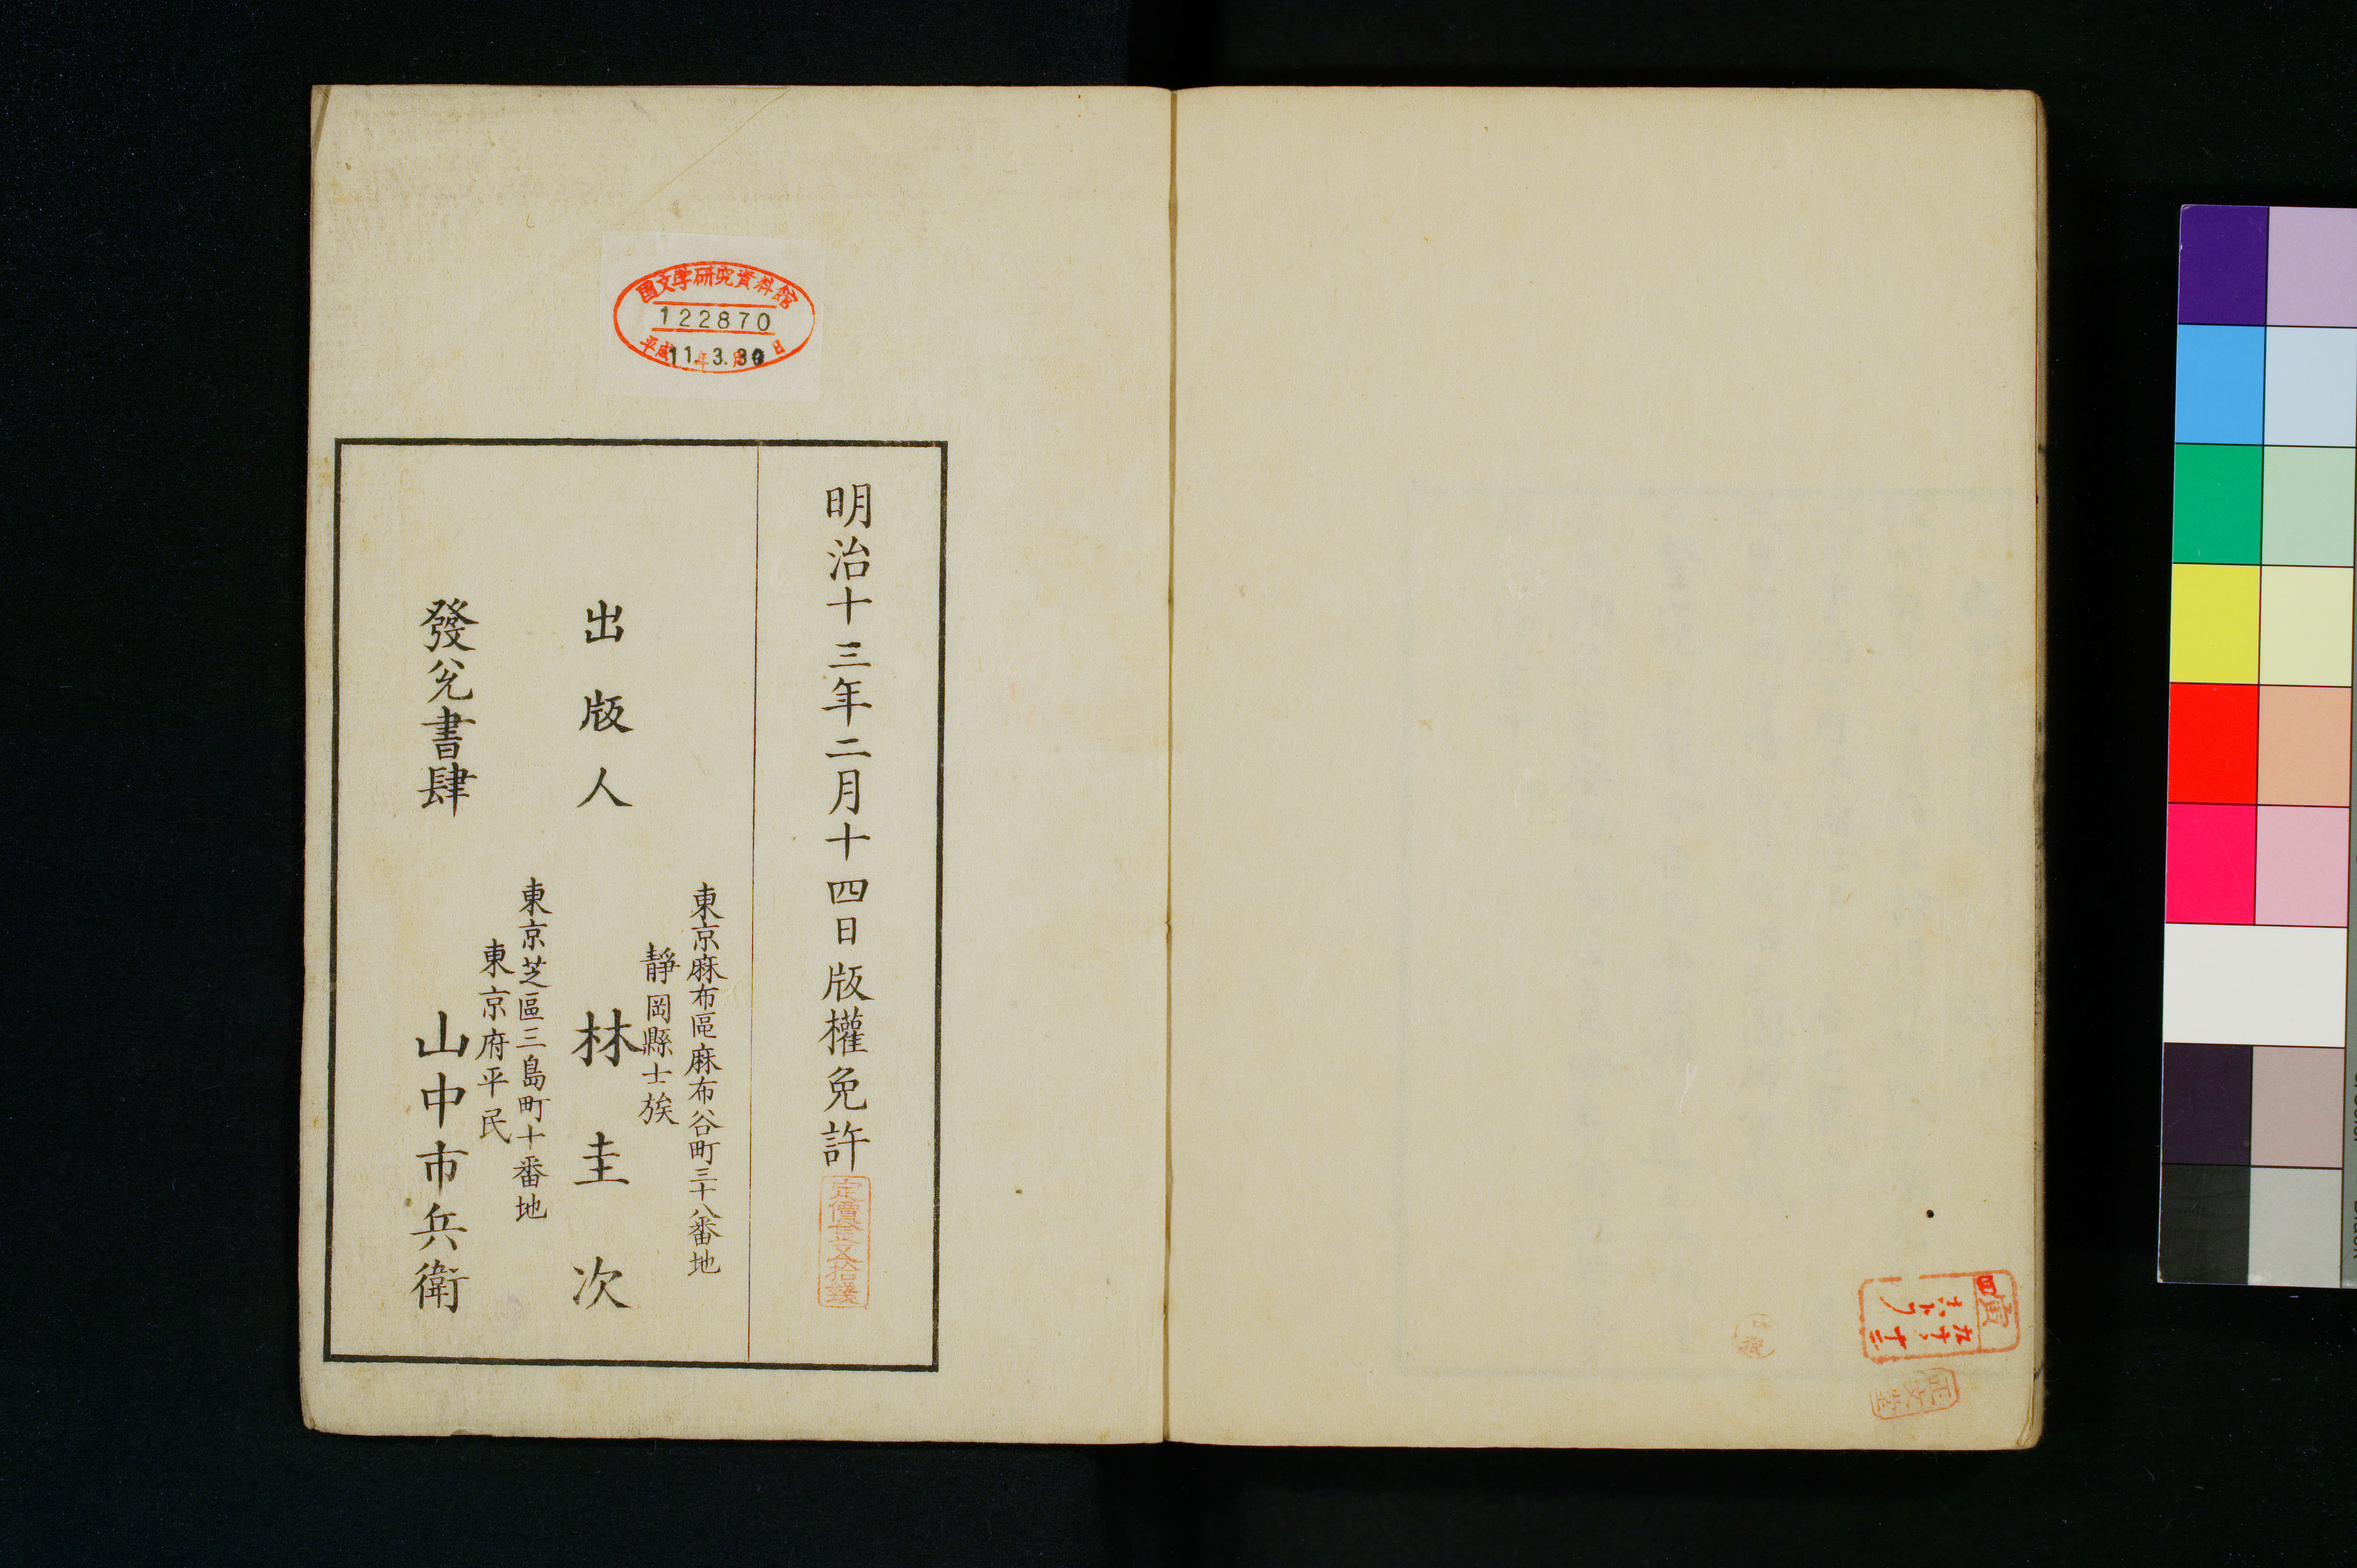 国文学研究資料館
122870
平成11年3月30日
明治十三年二月十四日版權免許
定價金五拾錢
東京麻布區麻布谷町三十八番地
靜岡縣士族
出版人 林圭次
東京芝區三島町十番地
東京府平民
發兌書肆 山中市兵衛
正文堂